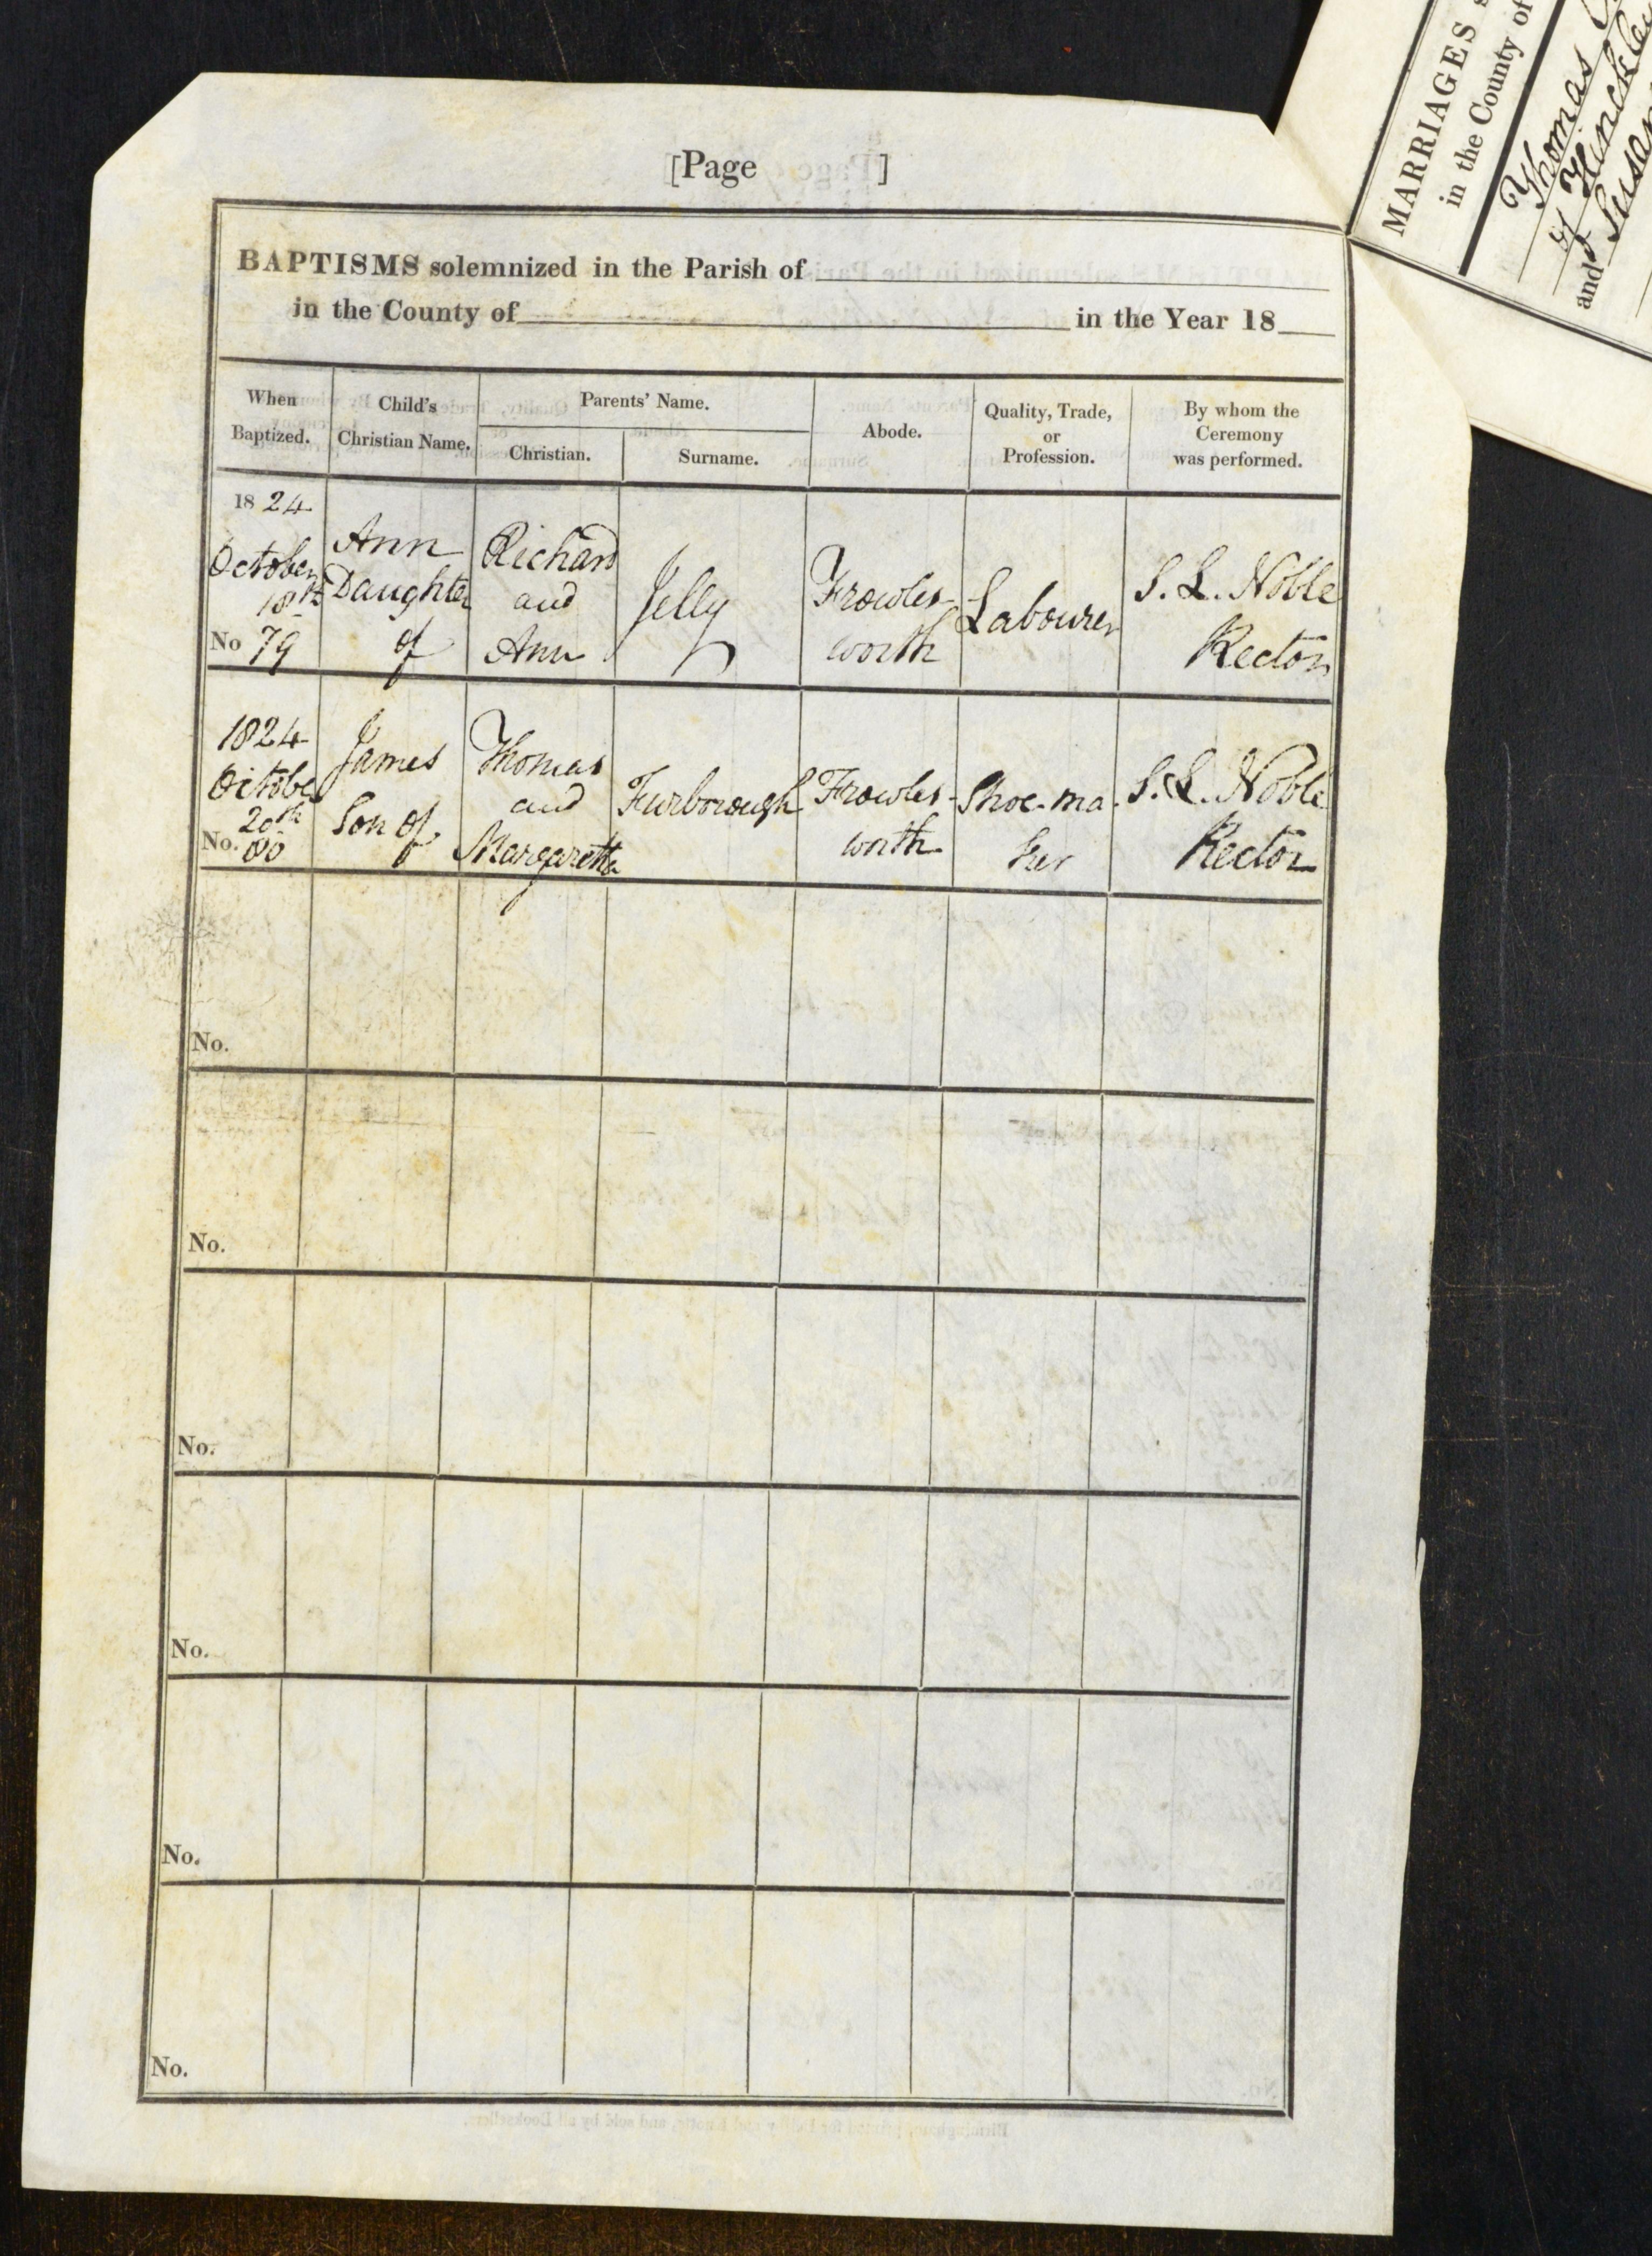 [Page ]
BAPTISMS solemnized in the Parish of
in the County of in the Year 18
When Baptized.
Child's Christian Name.
Parents' Name.
Christian.
Surname.
Abode.
Quality, Trade, or Profession.
By whom the Ceremony was performed.
1824
October
18th
No 79
Ann
Daughter
of
Richard
and
Ann
Jelly
Frowles-
worth
Labourer
S. L. Noble
Rector
1824
October
20th
No. 80
James
Son of
Thomas
and
Margaretta
Furborough
Frowles-
worth
Shoe-ma-
ker
S. L. Noble
Rector
No.
No.
No.
No.
No.
No.
MARRIAGES
in the County of
Thomas
of Hinckley
and Susan